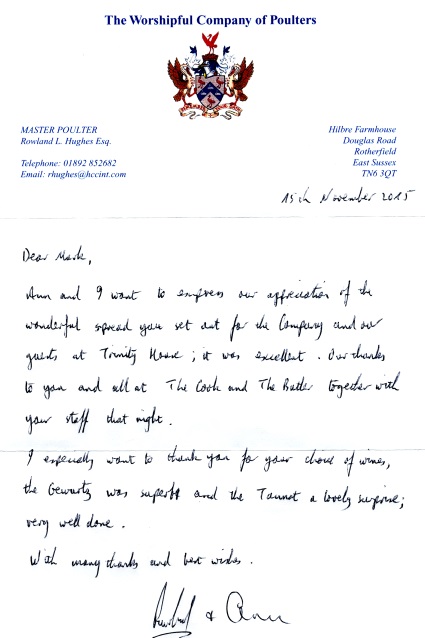 The Worshipful Company of Poulters
MASTER POULTER
Rowland L. Hughes Esq.
Telephone: 01892 852682
Email: rhughes@hccint.com
Hilbre Farmhouse
Douglas Road
Rotherfield
East Sussex
TN6 3QT
15th November 2015
Dear Mark,
Ann and I want to express our appreciation of the
wonderful spread you set out for the Company and our
guests at Trinity House; it was excellent. Our thanks
to you and all at The Cook and The Butler together with
your staff that night.
I especially want to thank you for your choice of wines,
the Gewurtz was superb and the Tannat a lovely surprise;
very well done.
With many thanks and best wishes.
Rowland & Ann